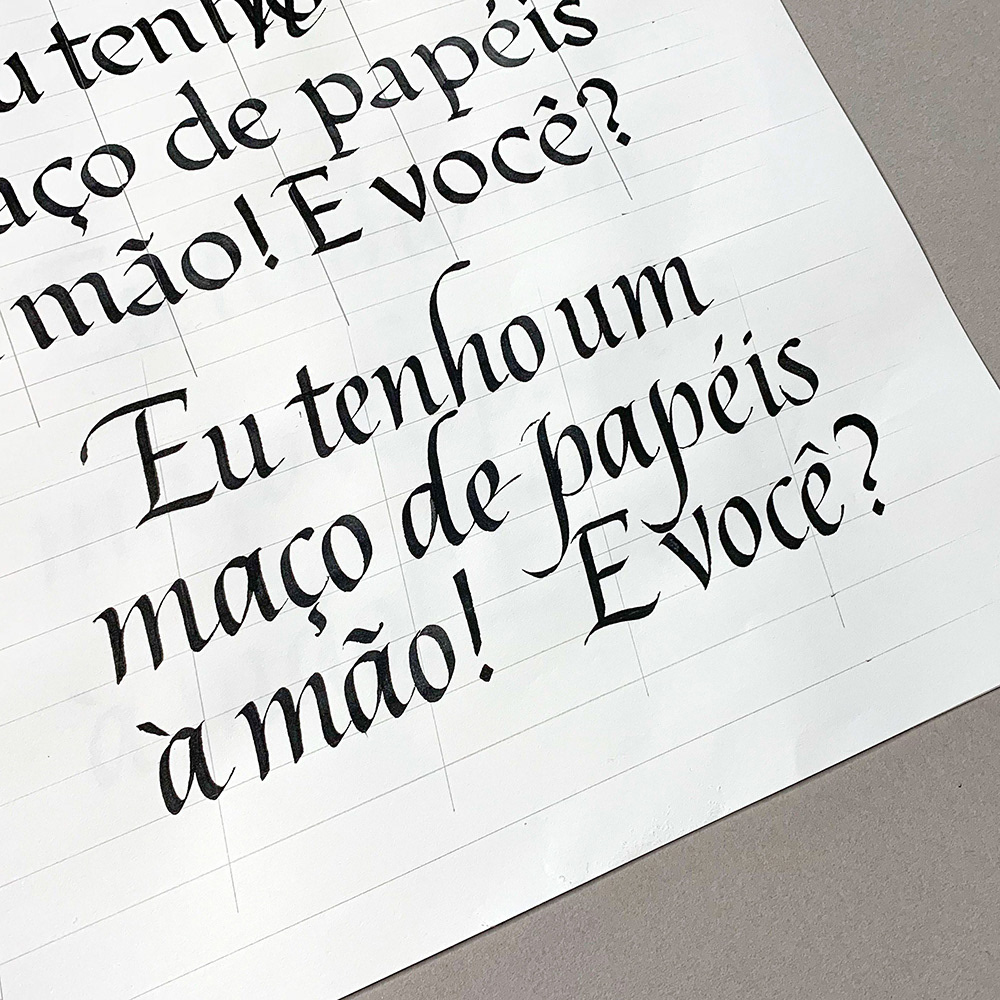 tenho
maço de papéis
mão! E você?
Eu tenho um
maço de papéis
à mão! E você?